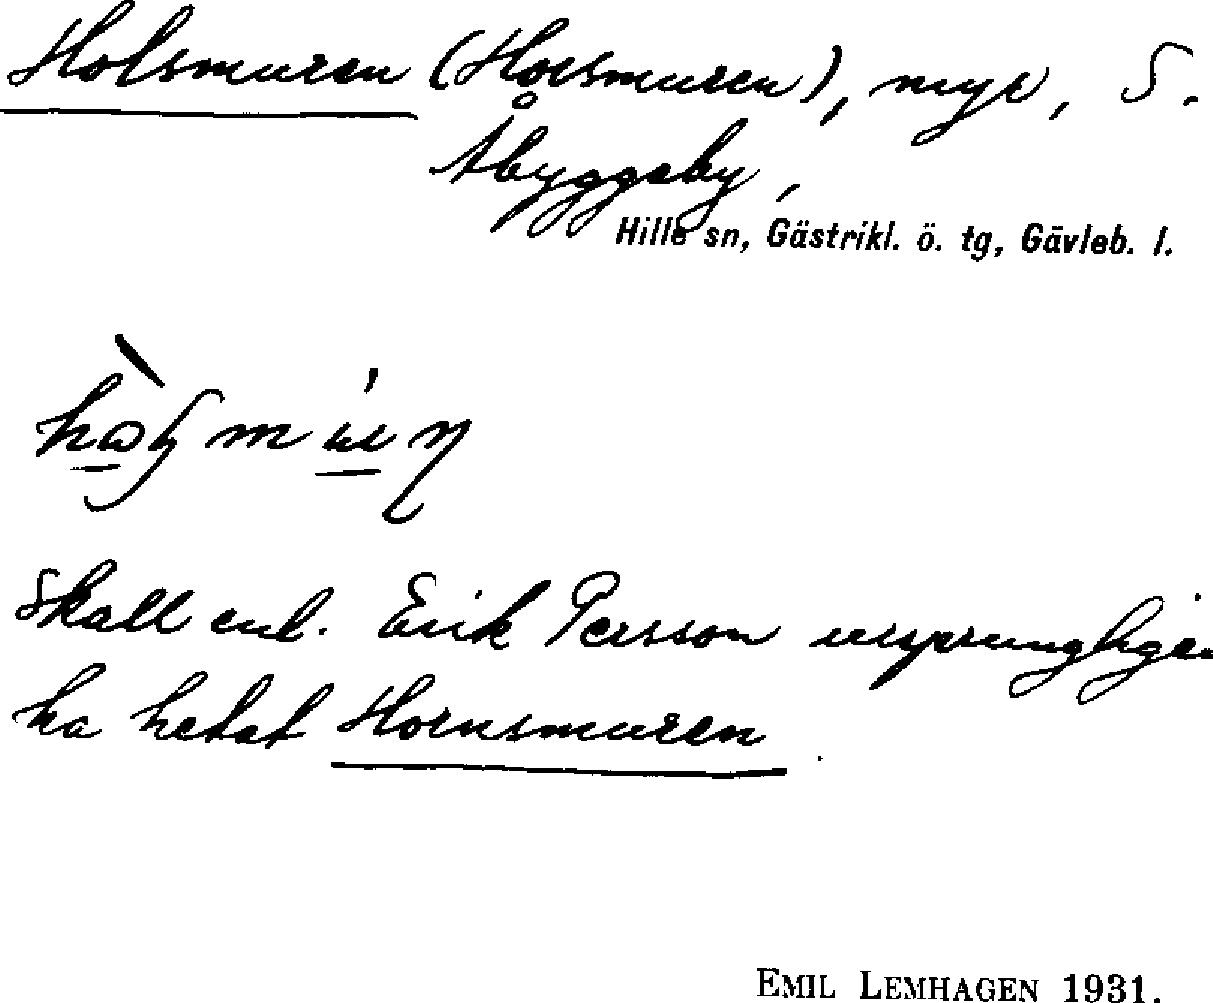 Holsmuren (Horsmuren), myr, S.
Åbyggeby,
Hille sn, Gästrikl. ö. tg, Gävleb. l.
Skall enl. Erik Persson ursprungligen
ha hetat Hornsmuren.
EMIL LEMHAGEN 1931.